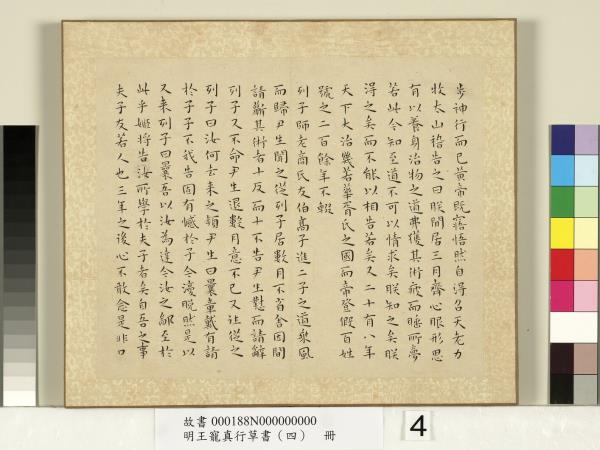 步神行而已黃帝既寤悟然自得召天老力
牧太山稽告之曰朕閒居三月齋心服形思
有以養身治物之道弗獲其術疲而睡所夢
若此今知至道不可以情求矣朕知之矣朕
得之矣而不能以相告若矣又二十有八年
天下大治幾若華胥氏之國而帝登假百姓
號之二百餘年不輟
列子師老商氏友伯高子進二子之道乘風
而歸尹生聞之從列子居數月不省舍因間
請蘄其術者十反而十不告尹生懟而請辭
列子又不命尹生退數月意不已又往從之
列子曰汝何去來之頻尹生曰曩章戴有請
於子子不我告固有憾於子今復脫然是以
又來列子曰曩吾以汝為達今汝之鄙至於
此乎姬將告汝所學於夫子者矣自吾之事
夫子友若人也三年之後心不敢念是非口
故書 000188N000000000
明王寵真行草書（四） 冊
4